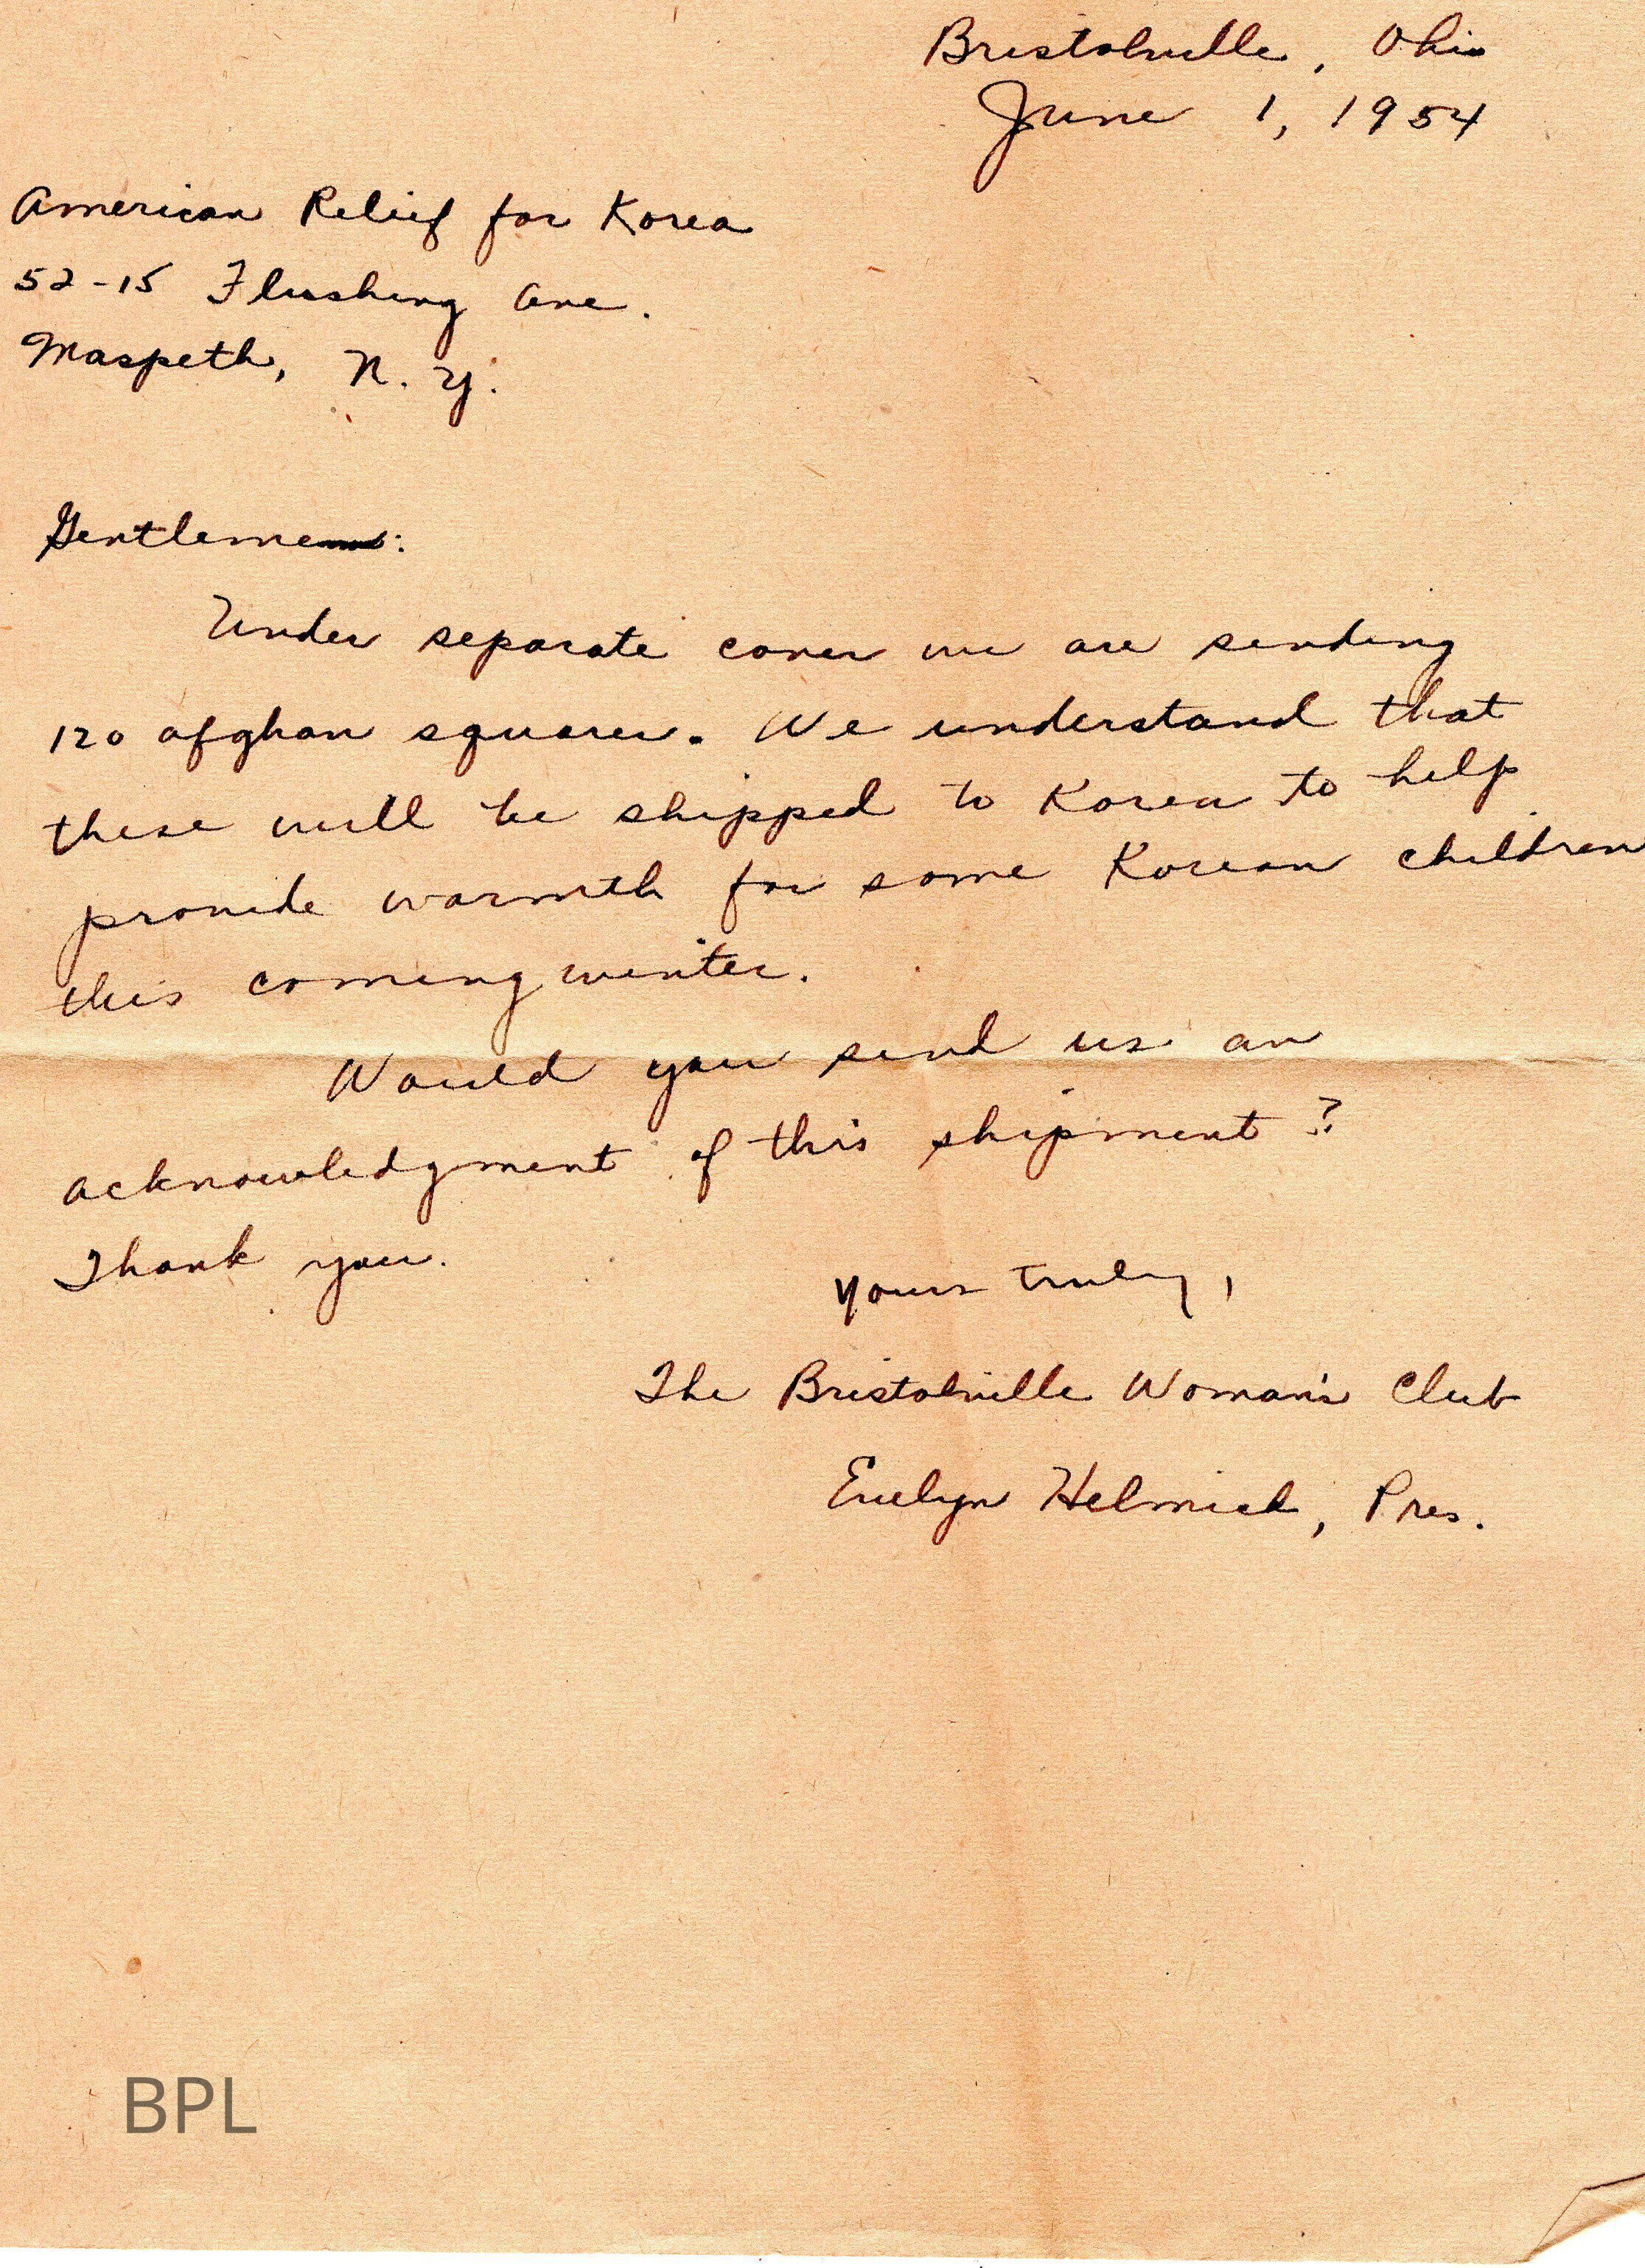 Bristolville, Ohio
June 1, 1954
American Relief for Korea
52-15 Flushing Ave.
Maspeth, N. Y.
Gentlemen:
Under separate cover we are sending
120 afghan squares. We understand that
these will be shipped to Korea to help
provide warmth for some Korean children
this coming winter.
Would you send us an
acknowledgment of this shipment?
Thank you.
Yours truly,
The Bristolville Woman's Club
Evelyn Helmick, Pres.
BPL